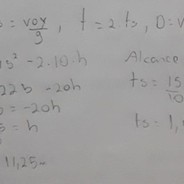 s = voy/g , t = 2.ts, D = v
s² - 2.10.h
Alcance
225 - 20h
ts = 15/10
= -20h
= h
ts = 1,
11,25 =